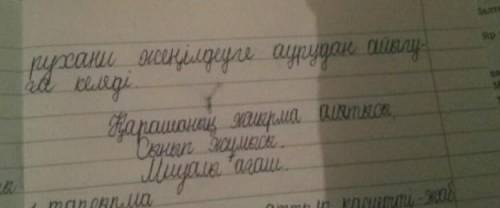 рухани жеңілдеуге аурудан айығу-
ға келеді.
Қарашаның жиырма алтысы.
Сынып жұмысы.
Миуалы ағаш.
тапсырма
қасиетті